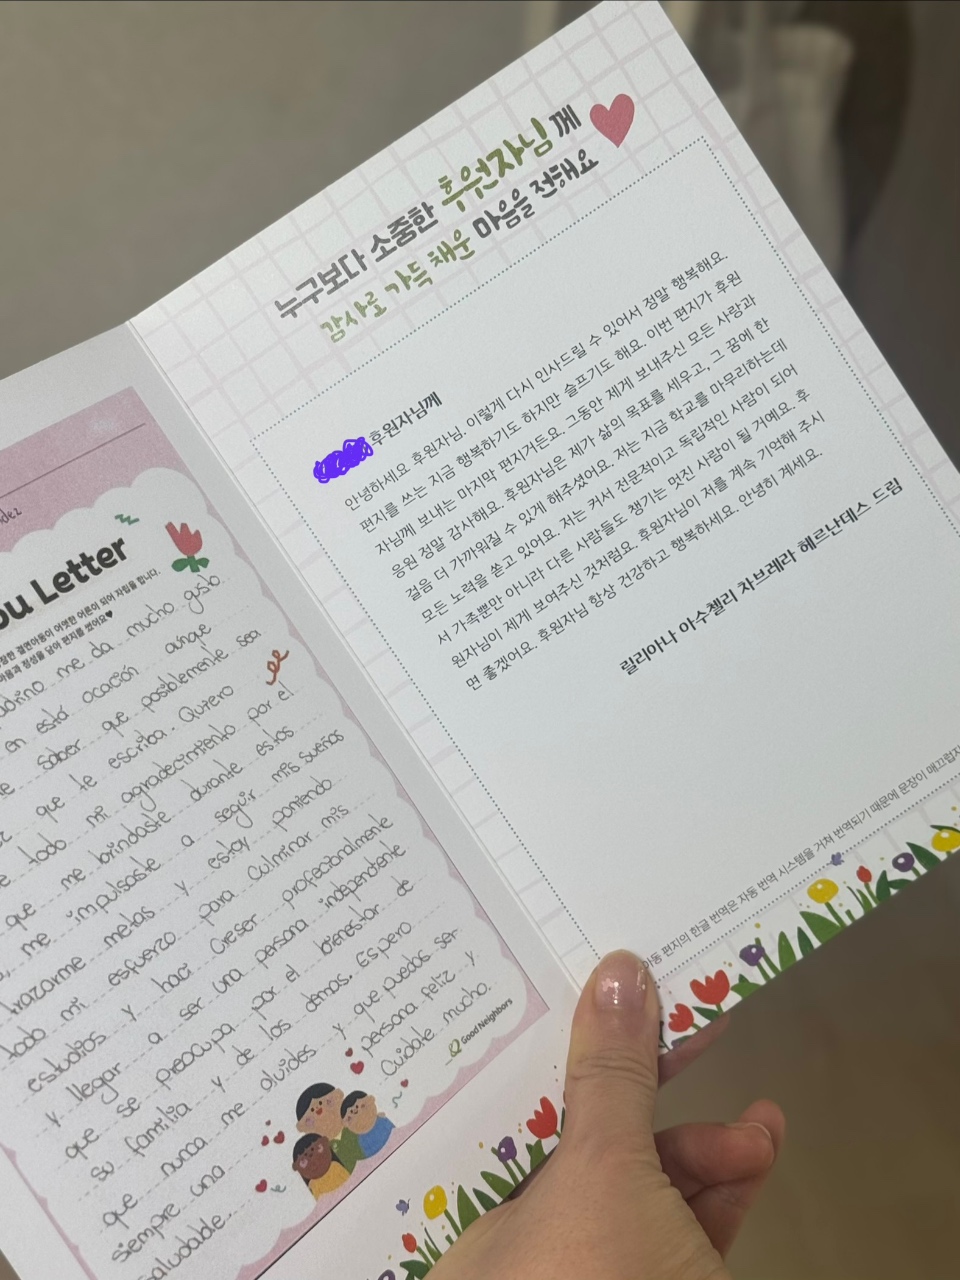 ndez
ou Letter
장한 결연아동이 어엿한 어른이 되어 자립을 합니다.
마음과 정성을 담아 편지를 썼어요♥
adrino me da mucho gusto
en está ocación aunque
saber que posiblemente sea
que te escriba. Quiero
todo mi agradecimiento por el
que me brindaste durante estos
me impulsaste a seguir mis sueños
trazarme metas y estoy poniendo
todo mi esfuerzo para culminar mis
estudios y haci creser profecionalmente
y llegar a ser una persona independiente
que se preocupa por el bienestar de
su familia y de los demas. Espero
que nunca me olvides y que puedas ser
siempre una persona feliz y
saludable. Cuidate mucho.
Good Neighbors
누구보다 소중한 후원자님께
감사로 가득 채운 마음을 전해요
후원자님께
안녕하세요 후원자님. 이렇게 다시 인사드릴 수 있어서 정말 행복해요.
편지를 쓰는 지금 행복하기도 하지만 슬프기도 해요. 이번 편지가 후원
자님께 보내는 마지막 편지거든요. 그동안 제게 보내주신 모든 사랑과
응원 정말 감사해요. 후원자님은 제가 삶의 목표를 세우고, 그 꿈에 한
걸음 더 가까워질 수 있게 해주셨어요. 저는 지금 학교를 마무리하는데
모든 노력을 쏟고 있어요. 저는 커서 전문적이고 독립적인 사람이 되어
서 가족뿐만 아니라 다른 사람들도 챙기는 멋진 사람이 될 거예요. 후
원자님이 제게 보여주신 것처럼요. 후원자님이 저를 계속 기억해 주시
면 좋겠어요. 후원자님 항상 건강하고 행복하세요. 안녕히 계세요.
릴리아나 아수첼리 차브레라 헤르난데스 드림
아동 편지의 한글 번역은 자동 번역 시스템을 거쳐 번역되기 때문에 문장이 매끄럽지